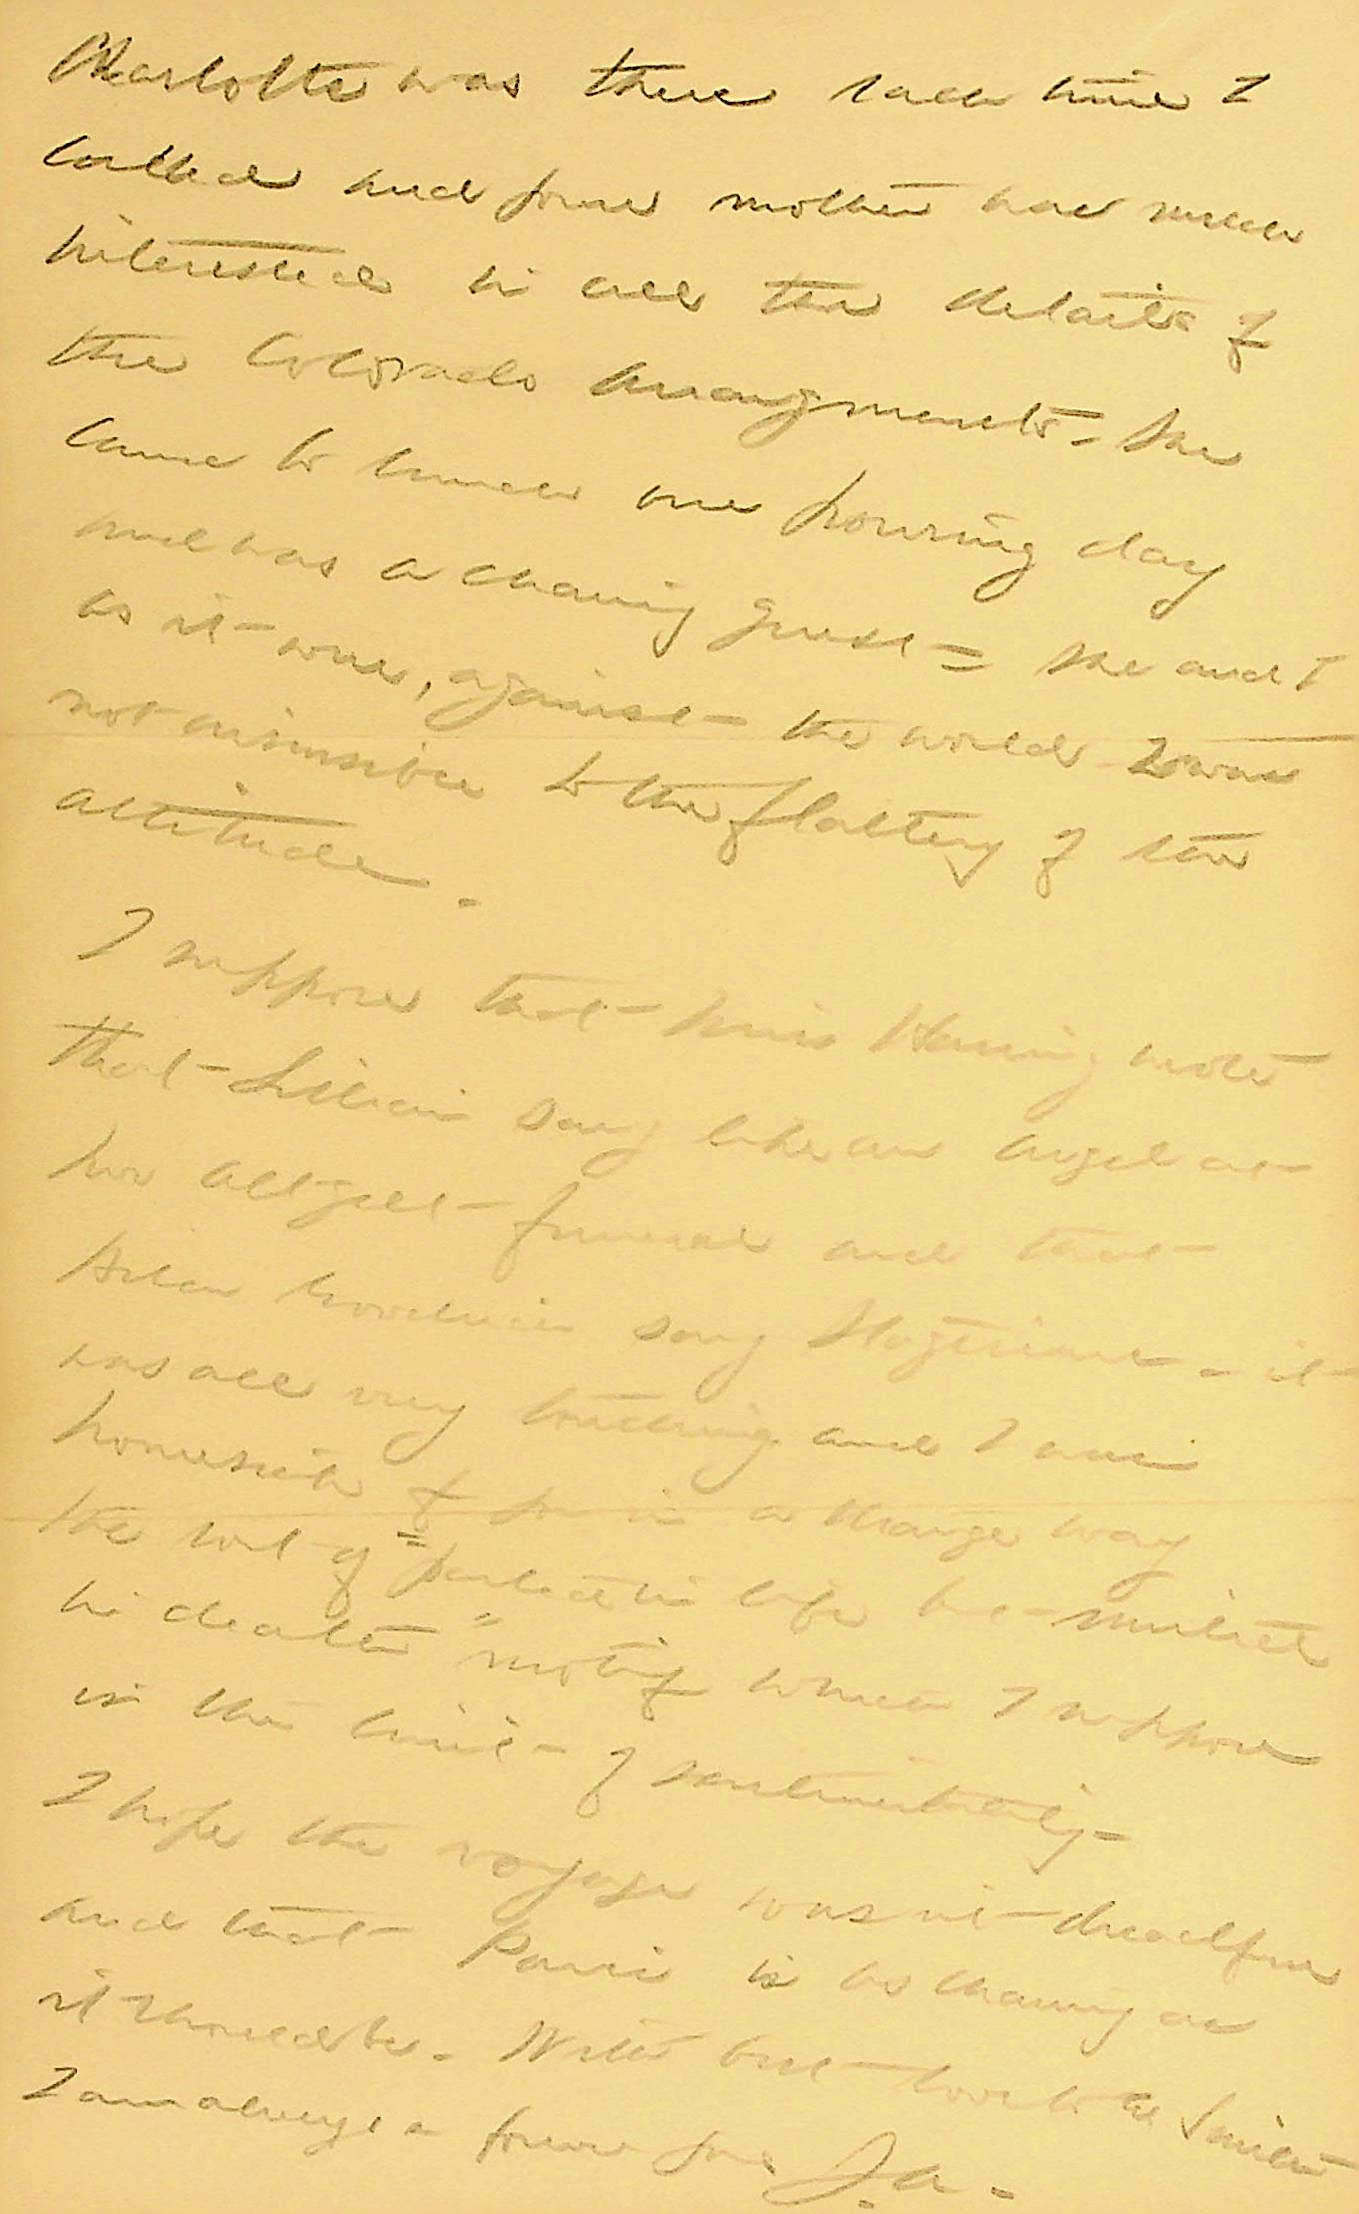 Charlotte was there each time I
called and found mother had much
interested in all the details of
the Colorado arrangements - She
came to lunch one pouring day
and was a charming guest = She and I
as it were, against the world I was
not insensible to the flattery of the
attitude.
I suppose that Miss Waring wrote
that Lillian sang like an angel at
funeral and that
sang it
was all very touching and I am
homesick for in a strange way
the sort of = parted in life be-united
in death " motif which I suppose
is the limit of sentimentality -
I hope the voyage wasn't dreadful
and that Paris is as charming as
it should be. With best love to the Smiths
I am always a J.A.